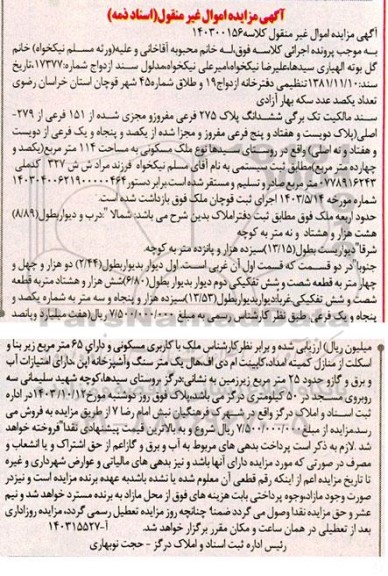 آگهی مزایده اموال غیر منقول(اسناد ذمه)
آگهی مزایده اموال غیر منقول کلاسه۱۴۰۳۰۰۱۵۶
به موجب پرونده اجرائی کلاسه فوق،له خانم محبوبه آقاخانی و علیه(ورثه مسلم نیکخواه) خانم
گل بوته الهیاری سیدها،علیرضا نیکخواه،امیرعلی نیکخواه،مدلول سند ازدواج شماره:۱۷۳۷۷،تاریخ
سند:۱۳۸۱/۱۱/۱۰تنظیمی دفترخانه ازدواج۱۹ و طلاق شماره۴۵ شهر قوچان استان خراسان رضوی
تعداد یکصد عدد سکه بهار آزادی
سند مالکیت تک برگی ششدانگ پلاک ۲۷۵ فرعی مفروزو مجزی شده از ۱۵۱ فرعی از ۲۷۹-
اصلی(پلاک دویست و هفتاد و پنج فرعی مفروز و مجزا شده از یکصد و پنجاه و یک فرعی از دویست
و هفتاد و نه اصلی) واقع در روستای سیدها نوع ملک مسکونی به مساحت ۱۱۴ متر مربع(یکصد و
چهارده متر مربع)مطابق ثبت سیستمی به نام آقای مسلم نیکخواه فرزند مراد ش ش ۳۲۷ کدملی
۰۷۷۸۹۱۶۲۴۳ متر مربع صادر و تسلیم و مستقر شده است.برابر دستور ۱۴۰۳۰۴۰۰۶۲۱۹۰۰۰۰۴۶۴
شماره مورخه ۱۴۰۳/۵/۱۴ اجرای ثبت قوچان ملک فوق بازداشت شده است.
حدود اربعه ملک فوق مطابق ثبت دفتراملاک بدین شرح می باشد: شمالا ":درب و دیواربطول(۸/۸۹)
هشت هزار و هشتاد و نه متر به کوچه
شرقا"دیوریست بطول(۱۳/۱۵)سیزده هزار و پانزده متر به کوچه.
جنوبا"در دو قسمت که قسمت اول آن غربی است.اول دیوار بدیواربطول(۲/۴۴) دو هزار و چهل و
چهار متر به قطعه شصت و شش تفکیکی دوم دیوار بدیوار بطول(۶/۸۰)شش هزار و هشتاد متربه قطعه
شصت و شش تفکیکی.غربادیواربدیواربطول(۱۳/۵۳)سیزده هزار و پنجاه و سه متر به شماره یکصد و
پنجاه و یک فرعی. طبق نظر کارشناس رسمی به مبلغ ۷/۵۰۰/۰۰۰/۰۰۰ ریال(هفت میلیارد و پانصد
میلیون ریال) ارزیابی شده و برابر نظر کارشناسی ملک با کاربری مسکونی و دارای ۶۵ متر مربع زیر بنا و
اسکلت از منازل کمیته امداد،کابینت ام دی اف،هال یک متر سنگ وآشپزخانه اپن دارای امتیازات آب
و برق و گازو حدود ۲۵ متر مربع زیرزمین به نشانی:درگز روستای سیدها،کوچه شهید سلیمانی سه
روبروی مسجد در ۵۰ کیلومتری درگز می باشد،پلاک فوق روز دوشنبه مورخ۱۴۰۳/۱۰/۱۲در اداره
ثبت اسناد و املاک درگز واقع در شهرک فرهنگیان نبش امام رضا ۷ از طریق مزایده به فروش می
رسد.مزایده از مبلغ۷/۵۰۰/۰۰۰/۰۰۰ ریال شروع و به بالاترین قیمت پیشنهادی نقدا"فروخته خواهد
شد .لازم به ذکر است پرداخت بدهی های مربوط به آب و برق و گازاعم از حق اشتراک و یا انشعاب و
مصرف در صورتی که مورد مزایده دارای آنها باشد و نیز بدهی های مالیاتی و عوارض شهرداری و غیره
تا تاریخ مزایده اعم از اینکه رقم قطعی آن معلوم شده یا نشده باشدبه عهده برنده مزایده است و نیزدر
صورت وجود مازاد،وجوه پرداختی بابت هزینه های فوق از محل مازاد به برنده مسترد خواهد شد و نیم
عشر و حق مزایده نقدا وصول می گردد.ضمنا چنانچه روز مزایده تعطیل رسمی گردد، مزایده روزاداری
بعد از تعطیلی در همان ساعت و مکان مقرر برگزار خواهد شد. آ-۱۴۰۳۱۵۵۲۷
رئیس اداره ثبت اسناد و املاک درگز - حجت نوبهاری